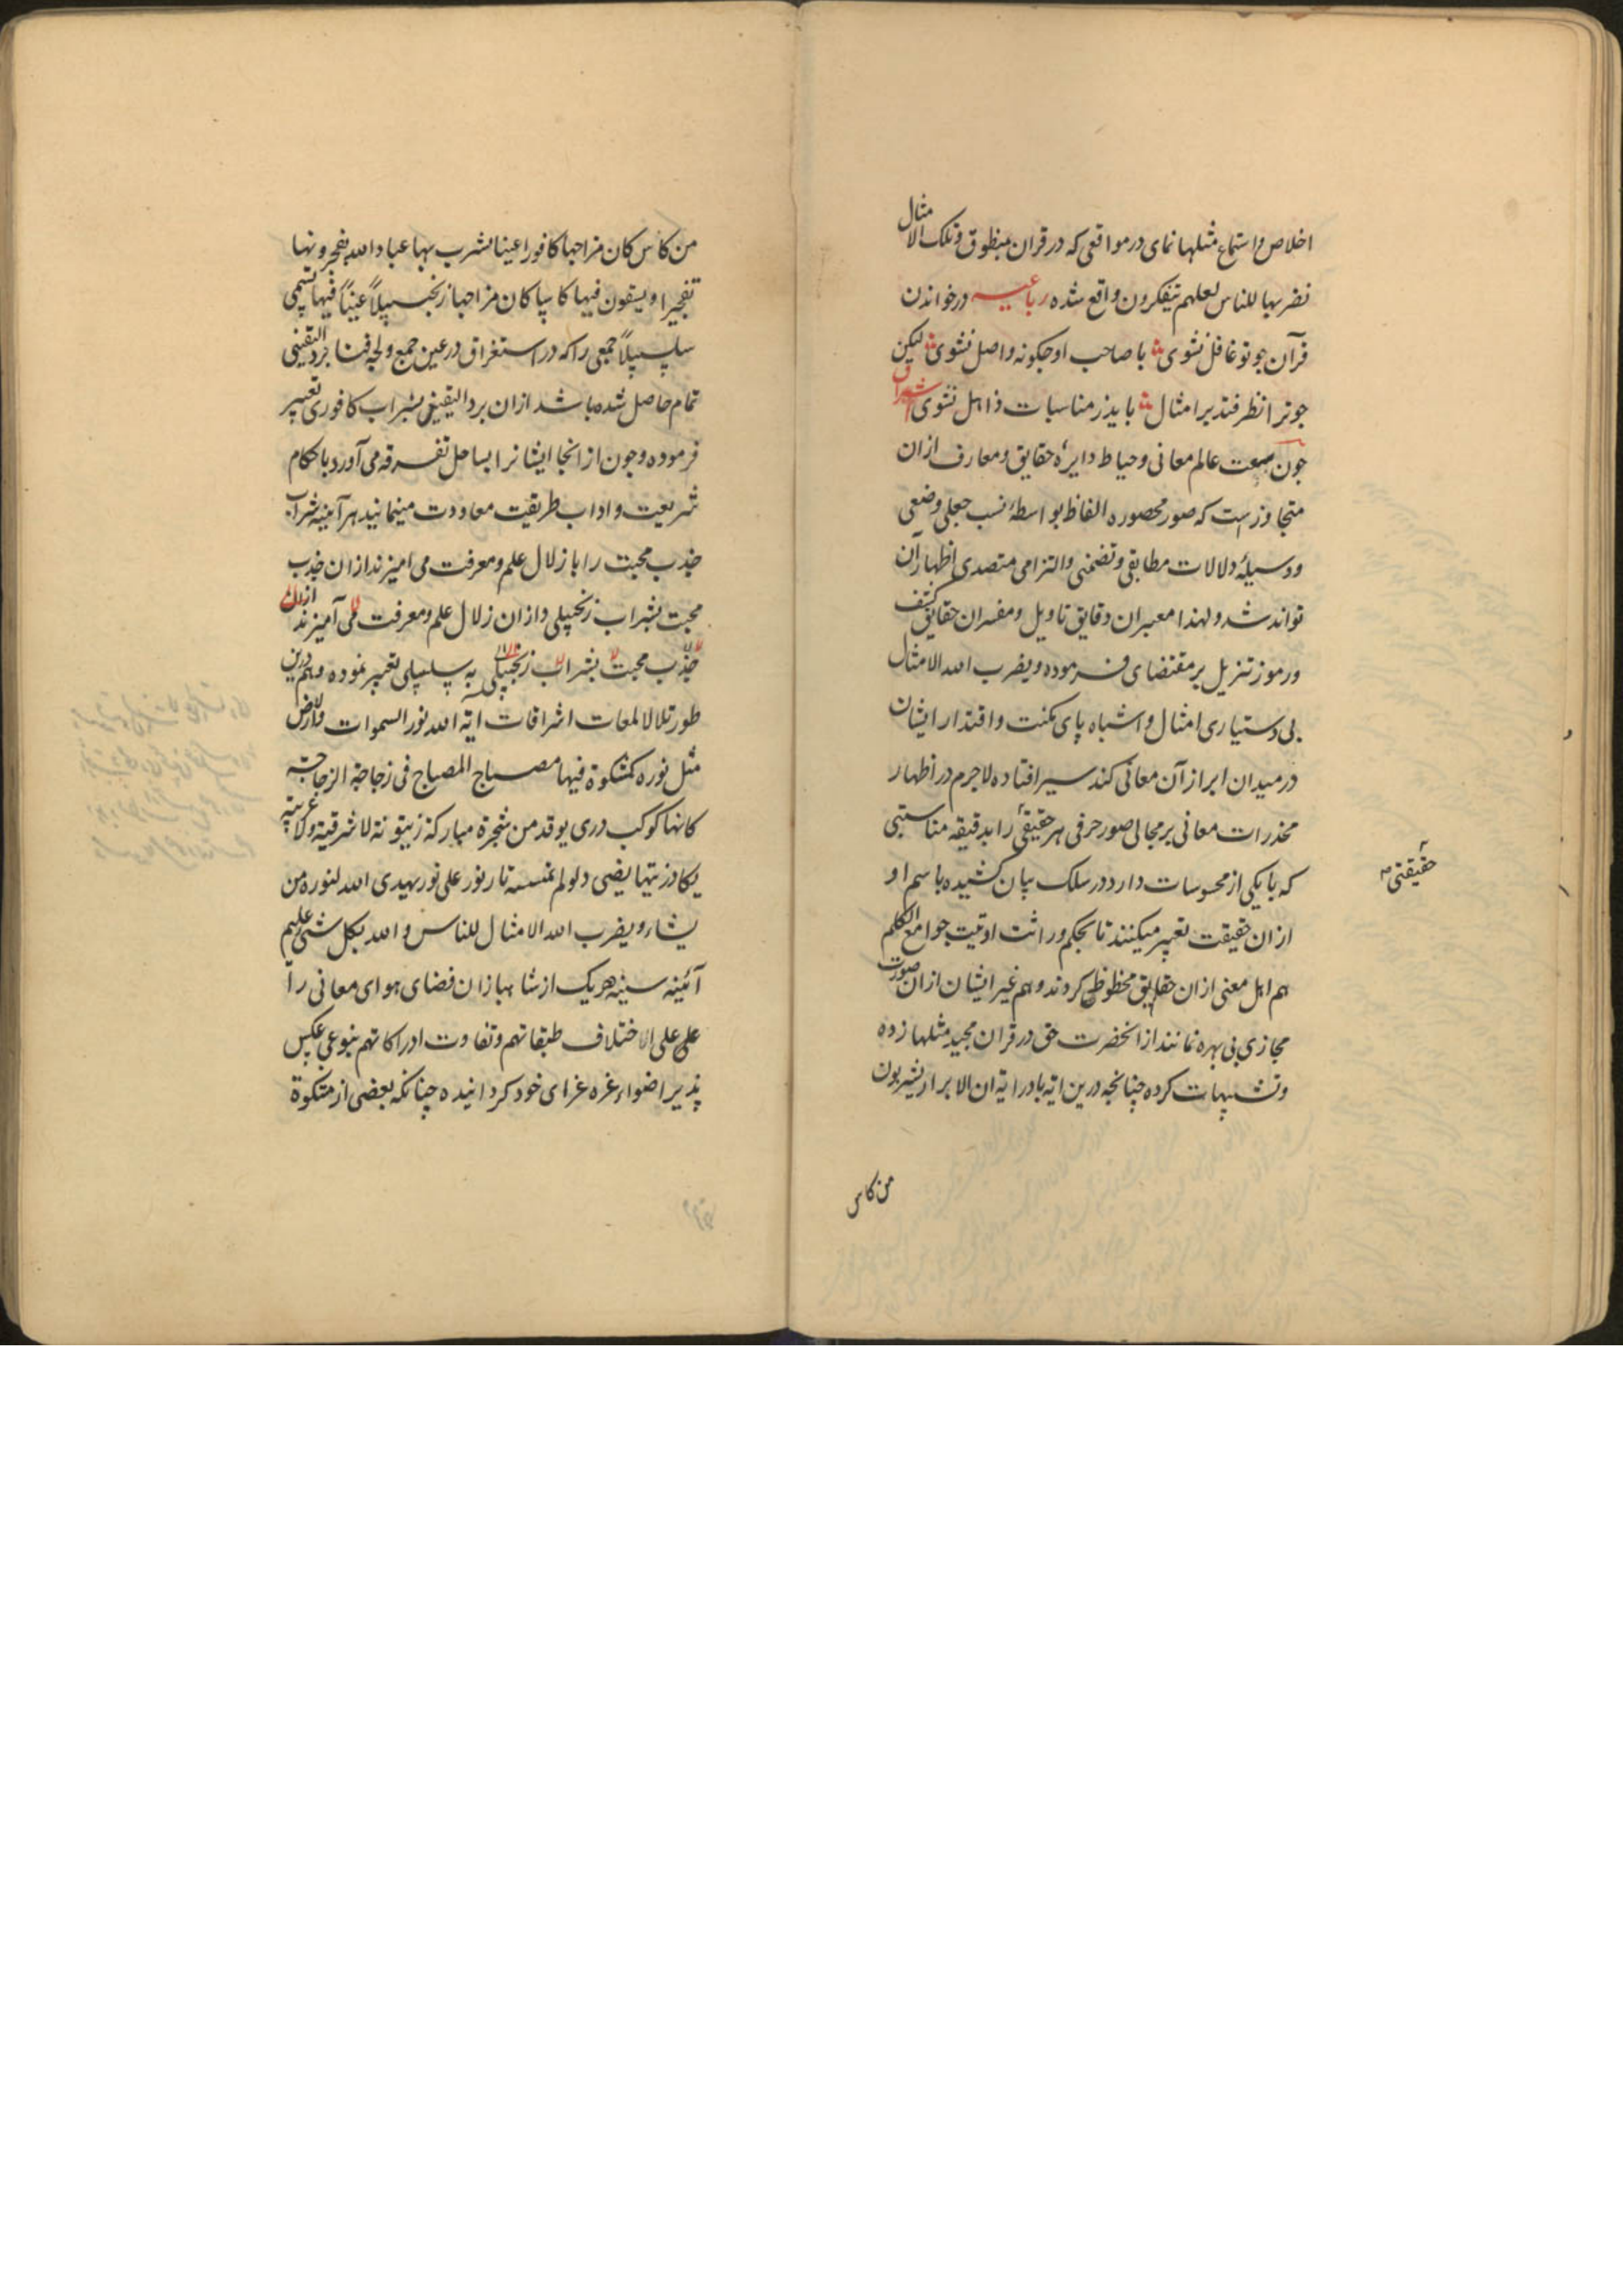 اخلاص واستماع مثلها نمای در مواقعی که در قران منطوق وتلک الامثال
نضربها للناس لعلهم یتفکرون واقع شده رباعیه در خواندن
قرآن جو تو غافل نشوی با صاحب او جکونه واصل نشوی لیکن
جو ترا نظر فتد بر امثال باید ز مناسبات ذاهل نشوی اشراق
جون سعت عالم معانی وحیاط دایرهٔ حقایق ومعارف ازان
متجاوزست که صور محصوره الفاظ بواسطهٔ نسب جعلی وضعی
ووسیلهٔ دلالات مطابقی وتضمنی والتزامی متصدی اظهار آن
تواند شد ولهذا معبران دقایق تاویل ومفسران حقایق کشف
ورموز تنزیل بر مقتضای فرموده ویضرب الله الامثال
بی دستیاری امثال واشباه پای مکنت واقتدار ایشان
در میدان ابراز آن معانی کند سیر افتاده لاجرم در اظهار
مخدرات معانی بر مجالی صور حرفی هر حقیقیٔ را بدقیقه مناسبتی
که با یکی از محسوسات دارد در سلک بیان کشیده باسم او
ازان حقیقت تعبیر میکنند تا بحکم وراثت اوتیت جوامع الکلم
هم اهل معنی ازان حقایق محظوظ کردند وهم غیر ایشان ازان صورت
مجازی بی بهره نمانند از انحضرت حق در قران مجید مثلها زده
وتشبیهات کرده چنانجه درین ایه بادرایه ان الابرار یشربون
حقیقتی
من کاس
من کاس کان مزاجها کافورا عینا یشرب بها عباد الله یفجرونها
تفجیرا ویسقون فیها کاسا کان مزاجها زنجبیلاً عیناً فیها تسمی
سلسبیلاً جمعی را که در استغراق در عین جمع ولجه فنا برد الیقینی
تمام حاصل شده باشد ازان برد الیقین بشراب کافوری تعبیر
فرموده وجون از انجا ایشانرا بساحل تفرقه می آورد باحکام
شریعت واداب طریقت معاودت مینمایند هر آینه شراب
جذب محبت را با زلال علم ومعرفت می امیزند ازان جذب
محبت بشراب زنجبیلی وازان زلال علم ومعرفت می آمیزند ازان
جذب محبت بشراب زنجبیلی به سلسبیلی تعبیر نموده وهم درین
طور تلالا لمعات اشراقات ایه الله نور السموات والارض
مثل نوره کمشکوة فیها مصباح المصباح فی زجاجة الزجاجة
کانها کوکب دری یوقد من شجرة مبارکة زیتونة لا شرقیة ولا غربیة
یکاد زیتها یضی ولو لم تمسسه نار نور علی نور یهدی الله لنوره من
یشاء ویضرب الله الامثال للناس والله بکل شی علیم
آئینه سینه هر یک از شاهبازان فضای هوای معانی را
علی علی الاختلاف طبقاتهم وتفاوت ادراکاتهم بنوعی عکس
پذیر اضواء غره غرای خود کردانیده چنانکه بعضی از مشکوة